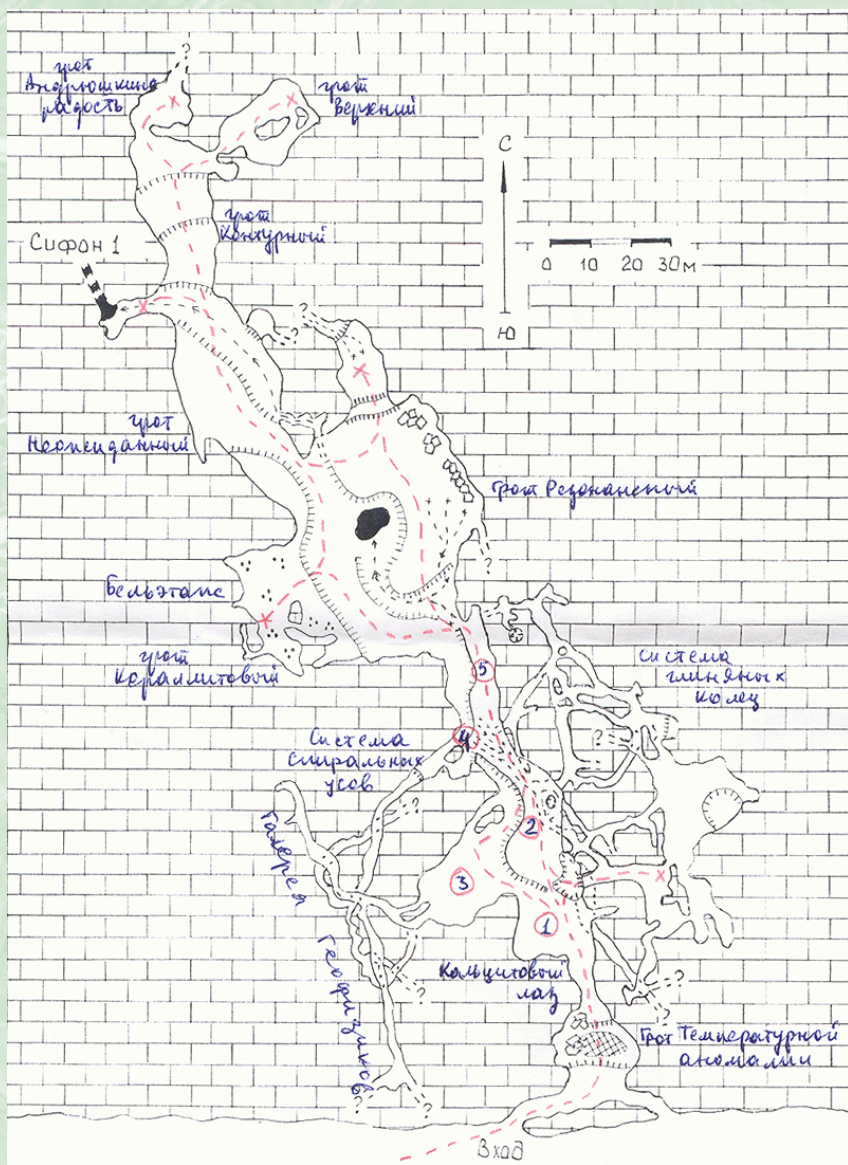 грот
Андрюшкина
радость
?
грот
Верхний
С
грот
Контурный
Сифон 1
0 10 20 30м
Ю
?
?
грот
Неожиданный
грот Резонансный
?
Бельэтаж
грот
Кораллитовый
5
Система
глиняных
колец
4
Система
спиральных
усов
?
?
2
Галерея
Геофизиков
3
1
Кальцитовый
лаз
?
?
?
Грот Температурной
аномалии
?
?
?
Вход